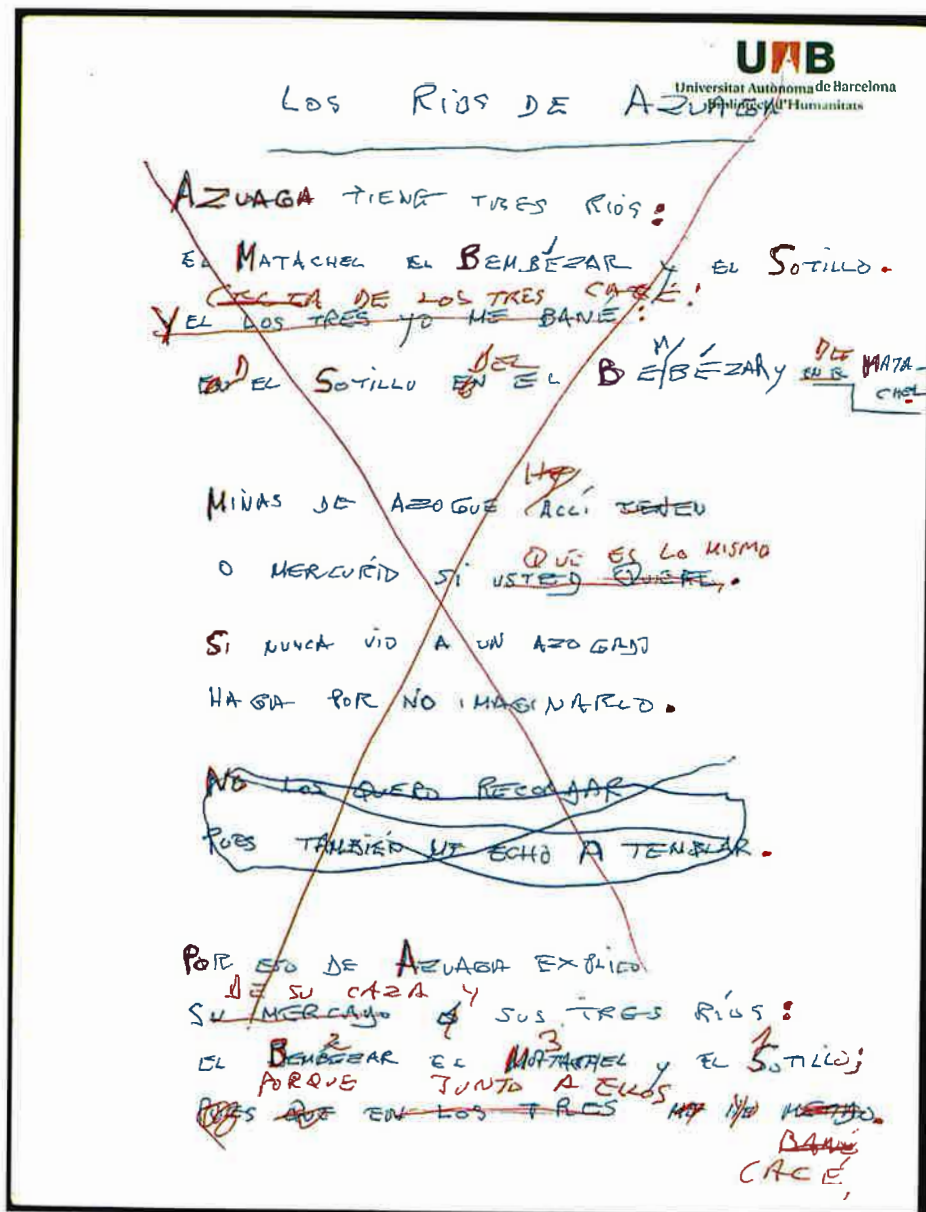 UAB
Universitat Autònoma de Barcelona
Biblioteca d'Humanitats
LOS RÍOS DE AZUAGA
AZUAGA TIENE TRES RÍOS:
EL MATACHEL EL BEMBÉZAR Y EL SOTILLO.
CERCA DE LOS TRES CACÉ!
Y EL LOS TRES YO ME BAÑÉ:
EN D EL SOTILLO EN DEL EL BEMBÉZAR Y EN E DE MATA-
CHEL.
MINAS DE AZOGUE ALLÍ TIENEN
QUE ES LO MISMO
O MERCURIO SI USTED QUIERE,.
SI NUNCA VIO A UN AZOGADO
HAGA POR NO IMAGINARLO.
NO LOS QUERO RECORDAR
PUES TAMBIÉN ME ECHO A TEMBLAR.
POR ESO DE AZUAGA EXPLICO
DE SU CAZA Y
SU MERCAYO SUS TRES RÍOS:
EL BEMBEZAR 2 EL MATACHEL 3 Y EL SOTILLO 1;
PORQUE JUNTO A ELLOS
PUES QUE EN LOS TRES YO
BAÑÉ
CACÉ,